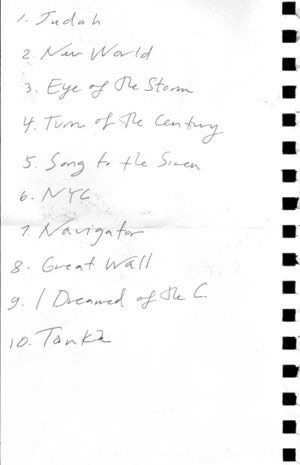 1. Judah
2. New World
3. Eye of the Storm
4. Turn of the Century
5. Song to the Siren
6. NYC
7. Navigator
8. Great Wall
9. I Dreamed of the C.
10. Tanka